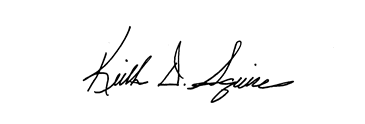 Keith D. Squires